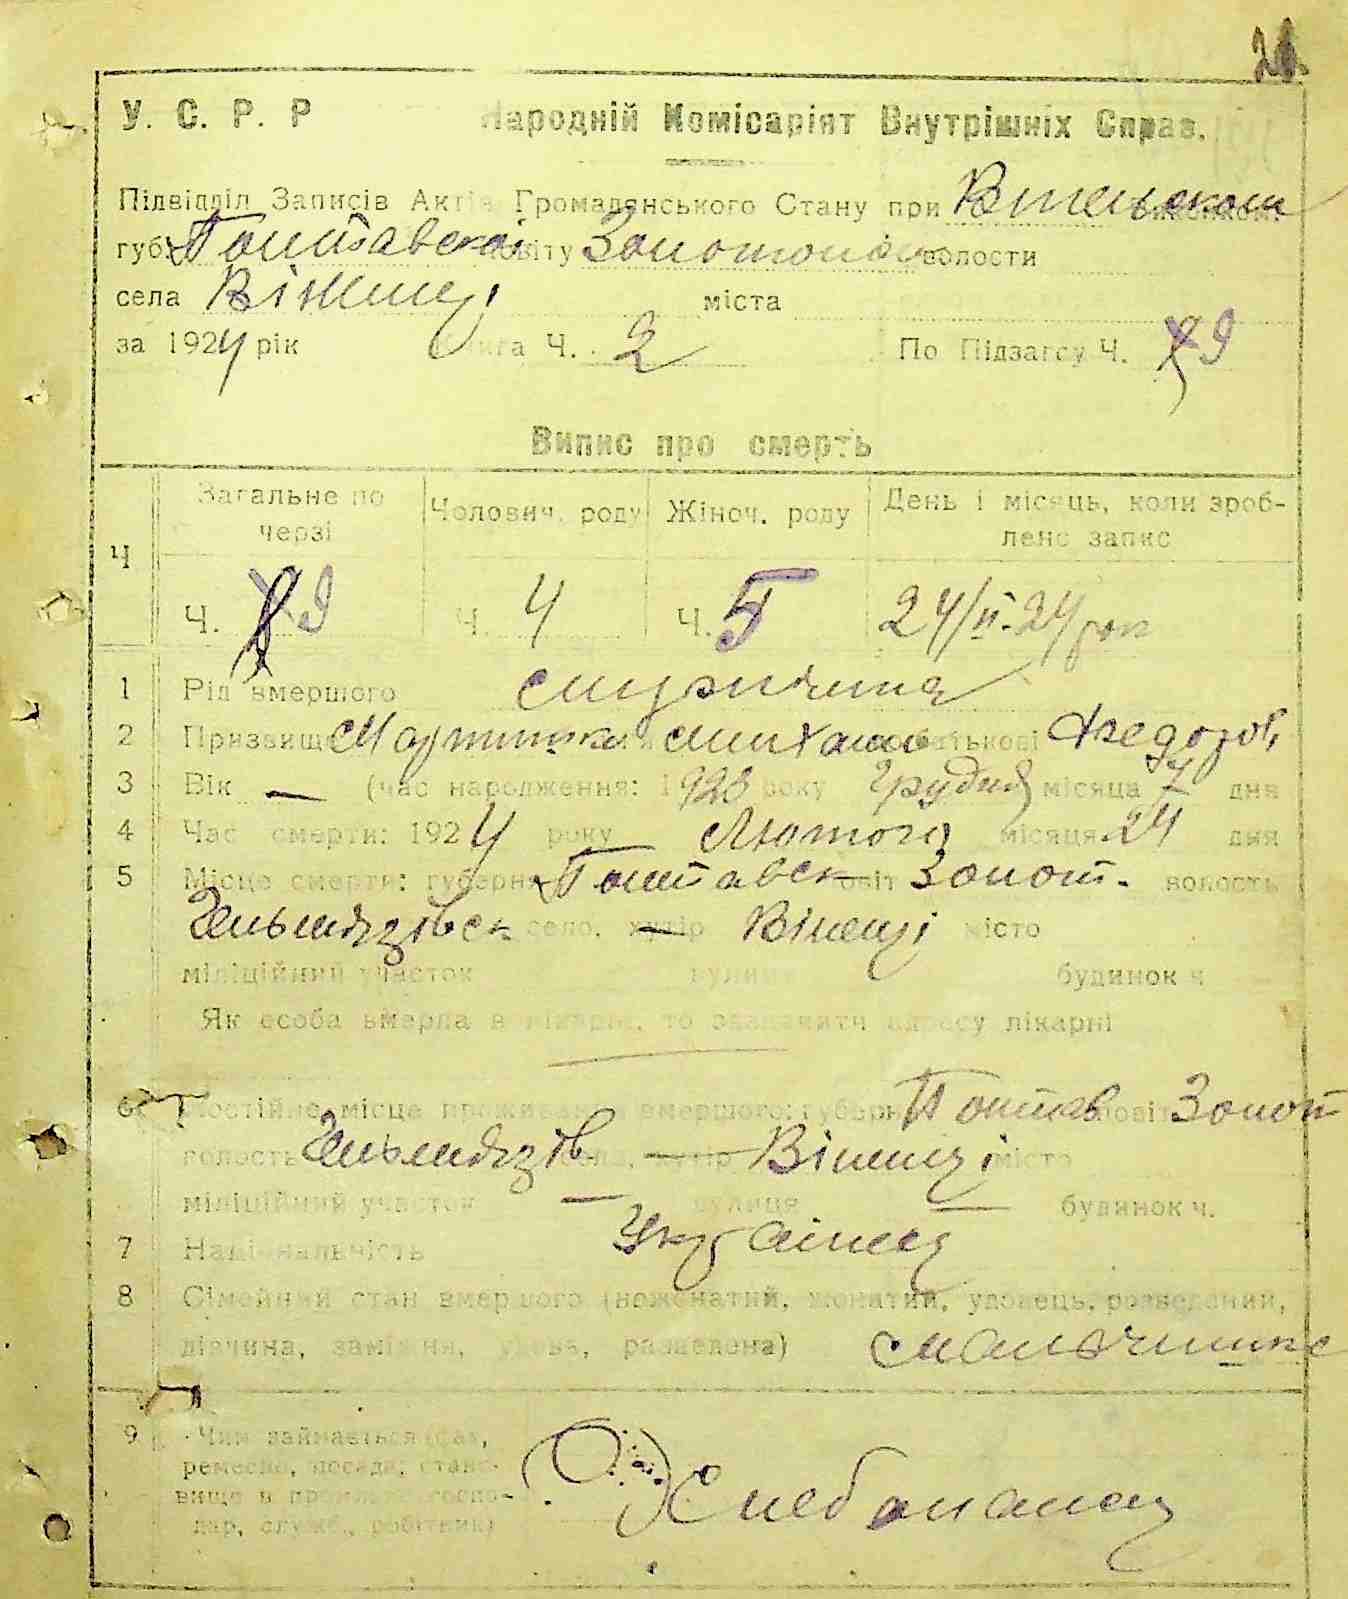 У. С. Р. Р Народній Комісаріят Внутрішніх Справ.
Підвідділ Записів Актів Громадянського Стану при
губ. Полтавскої повіту Золотонос волости
села Віненці міста
за 1924 рік Книга Ч. 2 По Підзагсу Ч. 9
Випис про смерть
Ч
Загальне по черзі
Чолович. роду
Жіноч. роду
День і місяць, коли зроблено запис
Ч. 9
Ч. 4
Ч. 5
24/II-24 рок
1 Рід вмершого мужчина
2 Призвище Мартишко імя Михайло по батькові Федоров
3 Вік — (час народження: 1923 року Грудня місяца 7 дня
4 Час смерти: 1924 року Лютого місяця 24 дня
5 Місце смерти: губерня Полтавск повіт Золот. волость
Гельмязівск село, хутір Віненці місто
міліційний участок вулиця будинок ч
Як особа вмерла в лікарні, то зазначити адресу лікарні
6 Постійне місце проживання вмершого: губерня Полтав повіт Золот
волость Гельмязів село, хутір Віненці місто
міліційний участок — вулиця — будинок ч.
7 Національність Українец
8 Сімейний стан вмершого (неженатий, жонатий, удовець, розведений,
дівчина, заміжня, удова, разведена) мальчишка
9 Чим займається (фах,
ремесло, посада; стано-
вище в промислі: госпо-
дар, служб., робітник)
Хлебопашец